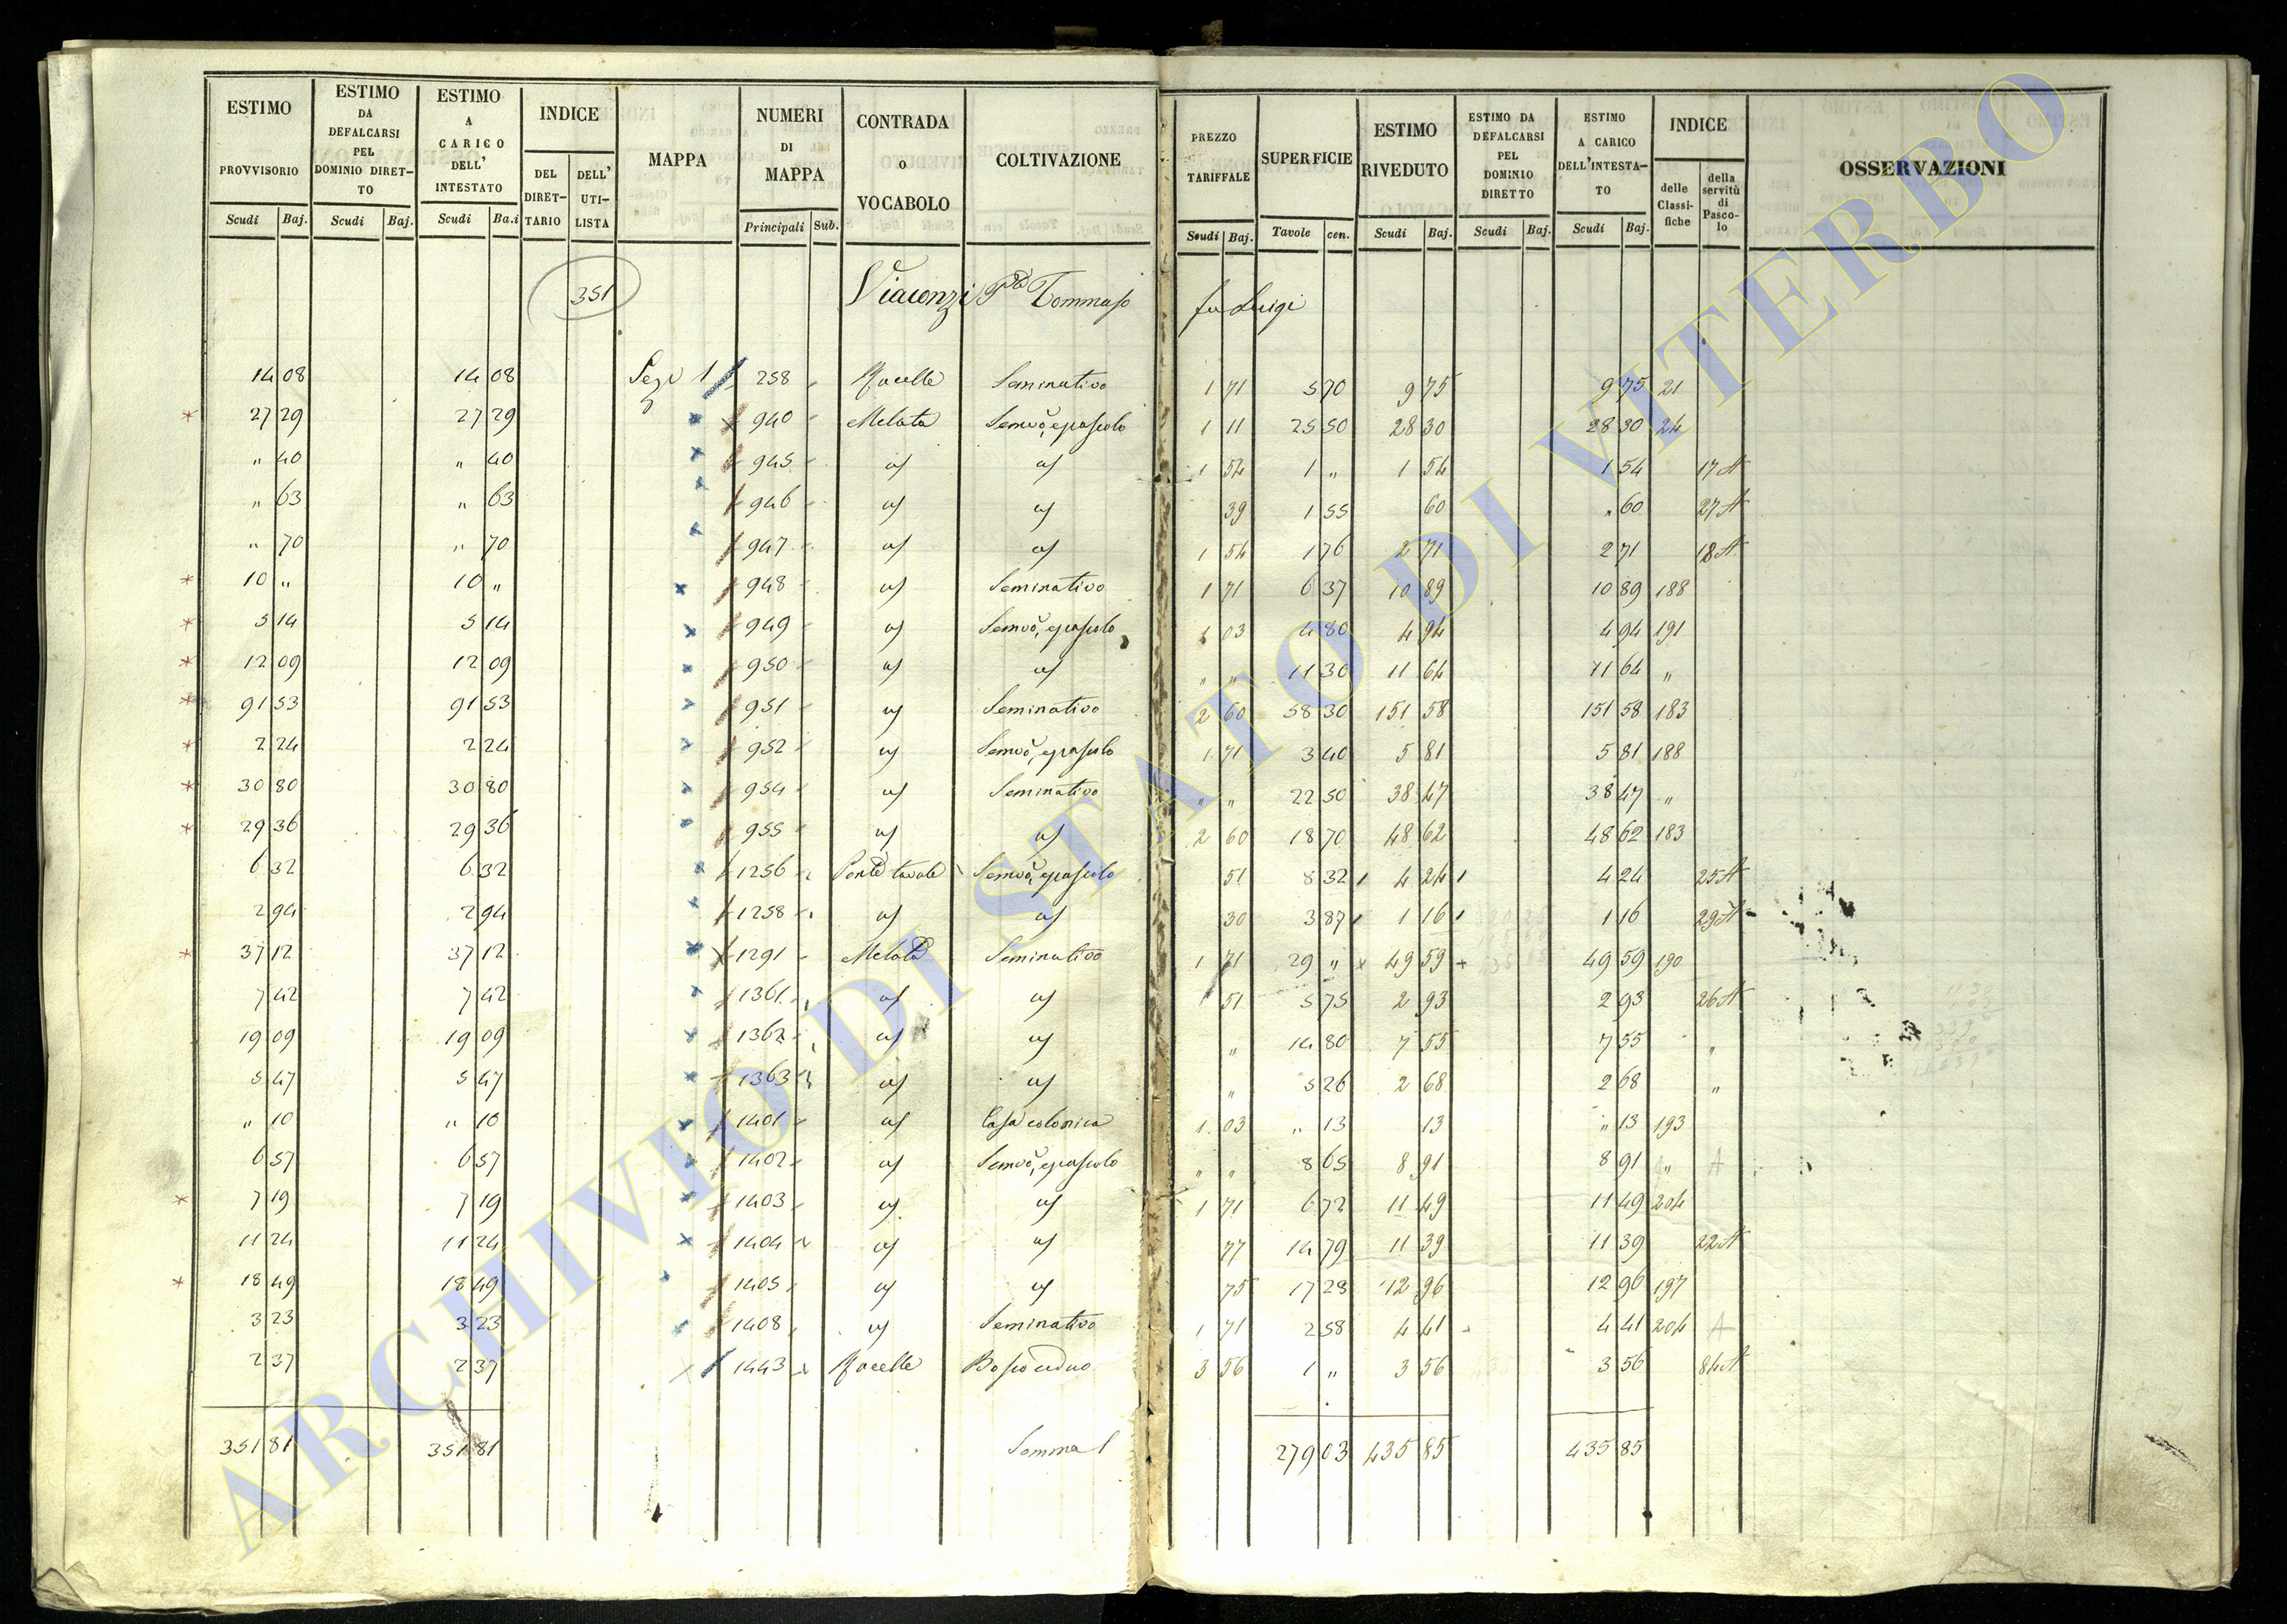 ESTIMO PROVVISORIO Scudi Baj. ESTIMO DA DEFALCARSI PEL DOMINIO DIRET-TO Scudi Baj. ESTIMO A CARICO DELL' INTESTATO Scudi Ba.i INDICE DEL DIRET-TARIO DELL' UTI-LISTA MAPPA NUMERI DI MAPPA Principali Sub. CONTRADA o VOCABOLO COLTIVAZIONE PREZZO TARIFFALE Scudi Baj. SUPERFICIE Tavole cen. ESTIMO RIVEDUTO Scudi Baj. ESTIMO DA DEFALCARSI PEL DOMINIO DIRETTO Scudi Baj. ESTIMO A CARICO DELL'INTESTA-TO Scudi Baj. INDICE delle Classi-fiche della servitù di Pasco-lo OSSERVAZIONI
351 Tommaso fu Luigi
14 08 14 08 1 258 Rocelle Seminativo 1 71 5 70 9 75 9 75 21
27 29 27 29 940 Melata Semvo, e pascolo 1 11 25 50 28 30 28 30 24
" 40 " 40 945 1 54 1 " 1 54 1 54 17 A
" 63 " 63 946 39 1 55 60 " 60 27 A
" 70 " 70 947 1 54 1 76 2 71 2 71 18 A
10 " 10 " 948 Seminativo 1 71 6 37 10 89 10 89 188
5 14 5 14 949 Semvo, e pascolo 1 03 4 80 4 94 4 94 191
12 09 12 09 950 " " 11 30 11 64 11 64 "
91 53 91 53 951 Seminativo 2 60 58 30 151 58 151 58 183
2 24 2 24 952 Semvo, e pascolo 1 71 3 40 5 81 5 81 188
30 80 30 80 954 Seminativo " " 22 50 38 47 38 47 "
29 36 29 36 955 2 60 18 70 48 62 48 62 183
6 32 6 32 1256 Semvo, e pascolo 51 8 32 4 24 4 24 25 A
2 94 2 94 1258 30 3 87 1 16 1 16 29 A
37 12 37 12 1291 Melata Seminativo 1 71 29 " 49 59 49 59 190
7 42 7 42 1361 51 5 75 2 93 2 93 26 A
19 09 19 09 1362 " 14 80 7 55 7 55 "
5 47 5 47 1363 " 5 26 2 68 2 68 "
" 10 " 10 1401 Casa colonica 1 03 " 13 13 " 13 193
6 57 6 57 1402 Semvo, e pascolo " " 8 65 8 91 8 91 " A
7 19 7 19 1403 1 71 6 72 11 49 11 49 204
11 24 11 24 1404 77 14 79 11 39 11 39 22 A
18 49 18 49 1405 75 17 28 12 96 12 96 197
3 23 3 23 1408 Seminativo 1 71 2 58 4 41 4 41 204 A
2 37 2 37 1443 Rocelle Bosco ceduo 3 56 1 " 3 56 3 56 84 A
351 81 351 81 Somma 279 03 435 85 435 85
ARCHIVIO DI STATO DI VITERBO